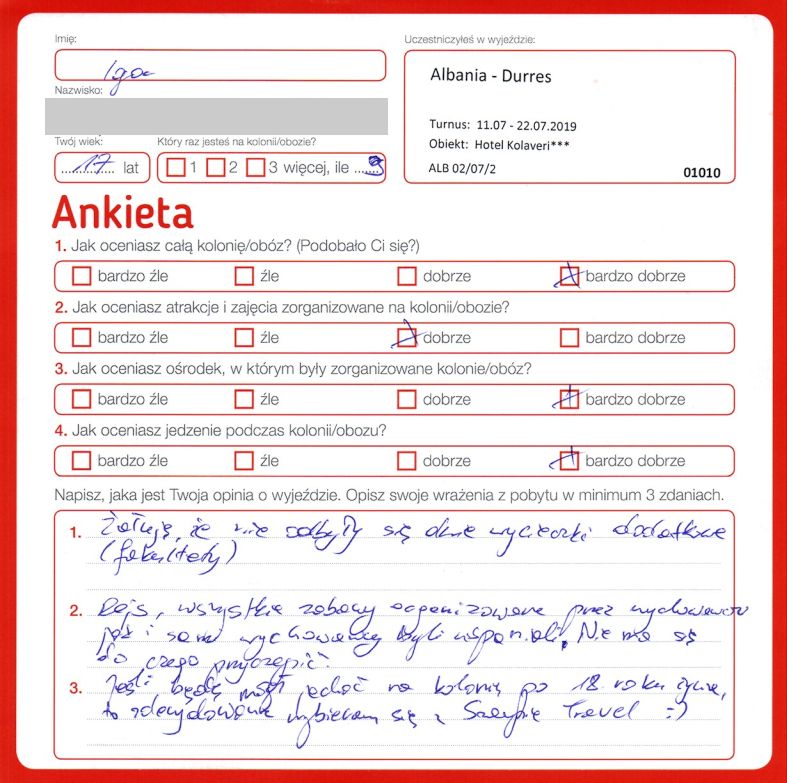 Imię:
Iga
Nazwisko:
Twój wiek:
17 lat
Który raz jesteś na kolonii/obozie?
1 2 3 więcej, ile 9
Uczestniczyłeś w wyjeździe:
Albania - Durres
Turnus: 11.07 - 22.07.2019
Obiekt: Hotel Kolaveri***
ALB 02/07/2 01010
Ankieta
1. Jak oceniasz całą kolonię/obóz? (Podobało Ci się?)
bardzo źle źle dobrze bardzo dobrze
2. Jak oceniasz atrakcje i zajęcia zorganizowane na kolonii/obozie?
bardzo źle źle dobrze bardzo dobrze
3. Jak oceniasz ośrodek, w którym były zorganizowane kolonie/obóz?
bardzo źle źle dobrze bardzo dobrze
4. Jak oceniasz jedzenie podczas kolonii/obozu?
bardzo źle źle dobrze bardzo dobrze
Napisz, jaka jest Twoja opinia o wyjeździe. Opisz swoje wrażenia z pobytu w minimum 3 zdaniach.
1. Żałuję, że nie odbyły się dwie wycieczki dodatkowe
(fakultety)
2. Rejs, wszystkie zabawy organizowane przez wychowawców
jak i sami wychowawcy byli wspaniali. Nie ma się
do czego przyczepić.
3. Jeśli będę mógł jechać na kolonię po 18. roku życia,
to zdecydowanie wybieram się z Szarpie Travel :)